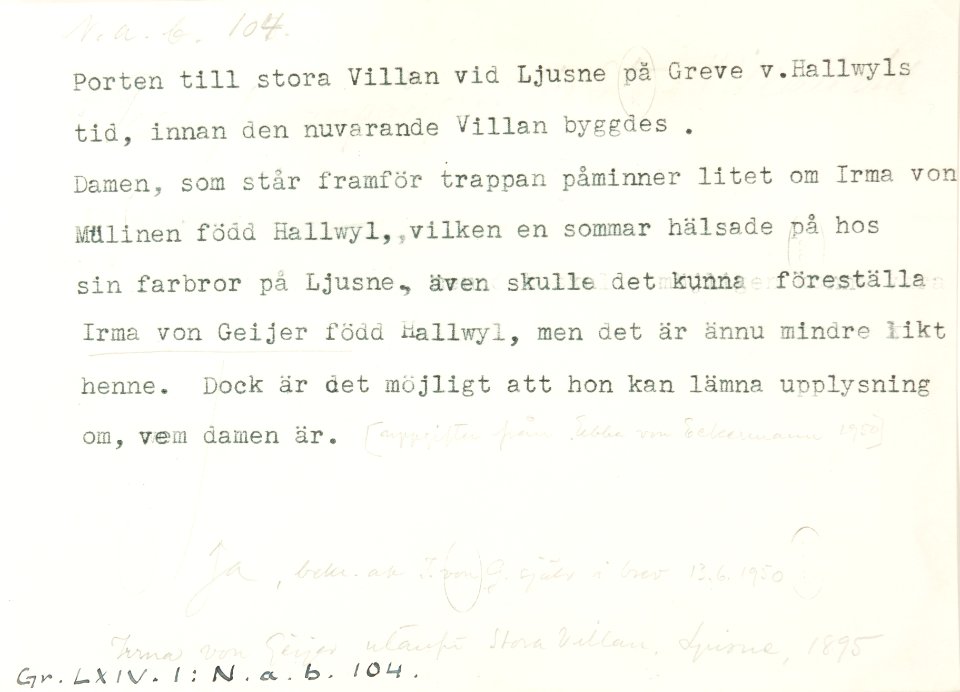 N.a.b. 104.
Porten till stora Villan vid Ljusne på Greve v.Hallwyls
tid, innan den nuvarande Villan byggdes .
Damen, som står framför trappan påminner litet om Irma von
Mülinen född Hallwyl, vilken en sommar hälsade på hos
sin farbror på Ljusne, även skulle det kunna föreställa
Irma von Geijer född Hallwyl, men det är ännu mindre likt
henne. Dock är det möjligt att hon kan lämna upplysning
om, vem damen är. [uppgifter från Ebba von Eckermann 1950]
Ja, bekr. av I. von G. själv i brev 13.6.1950
Irma von Geijer utanför Stora Villan, Ljusne, 1895
Gr. LXIV. 1: N. a. b. 104.